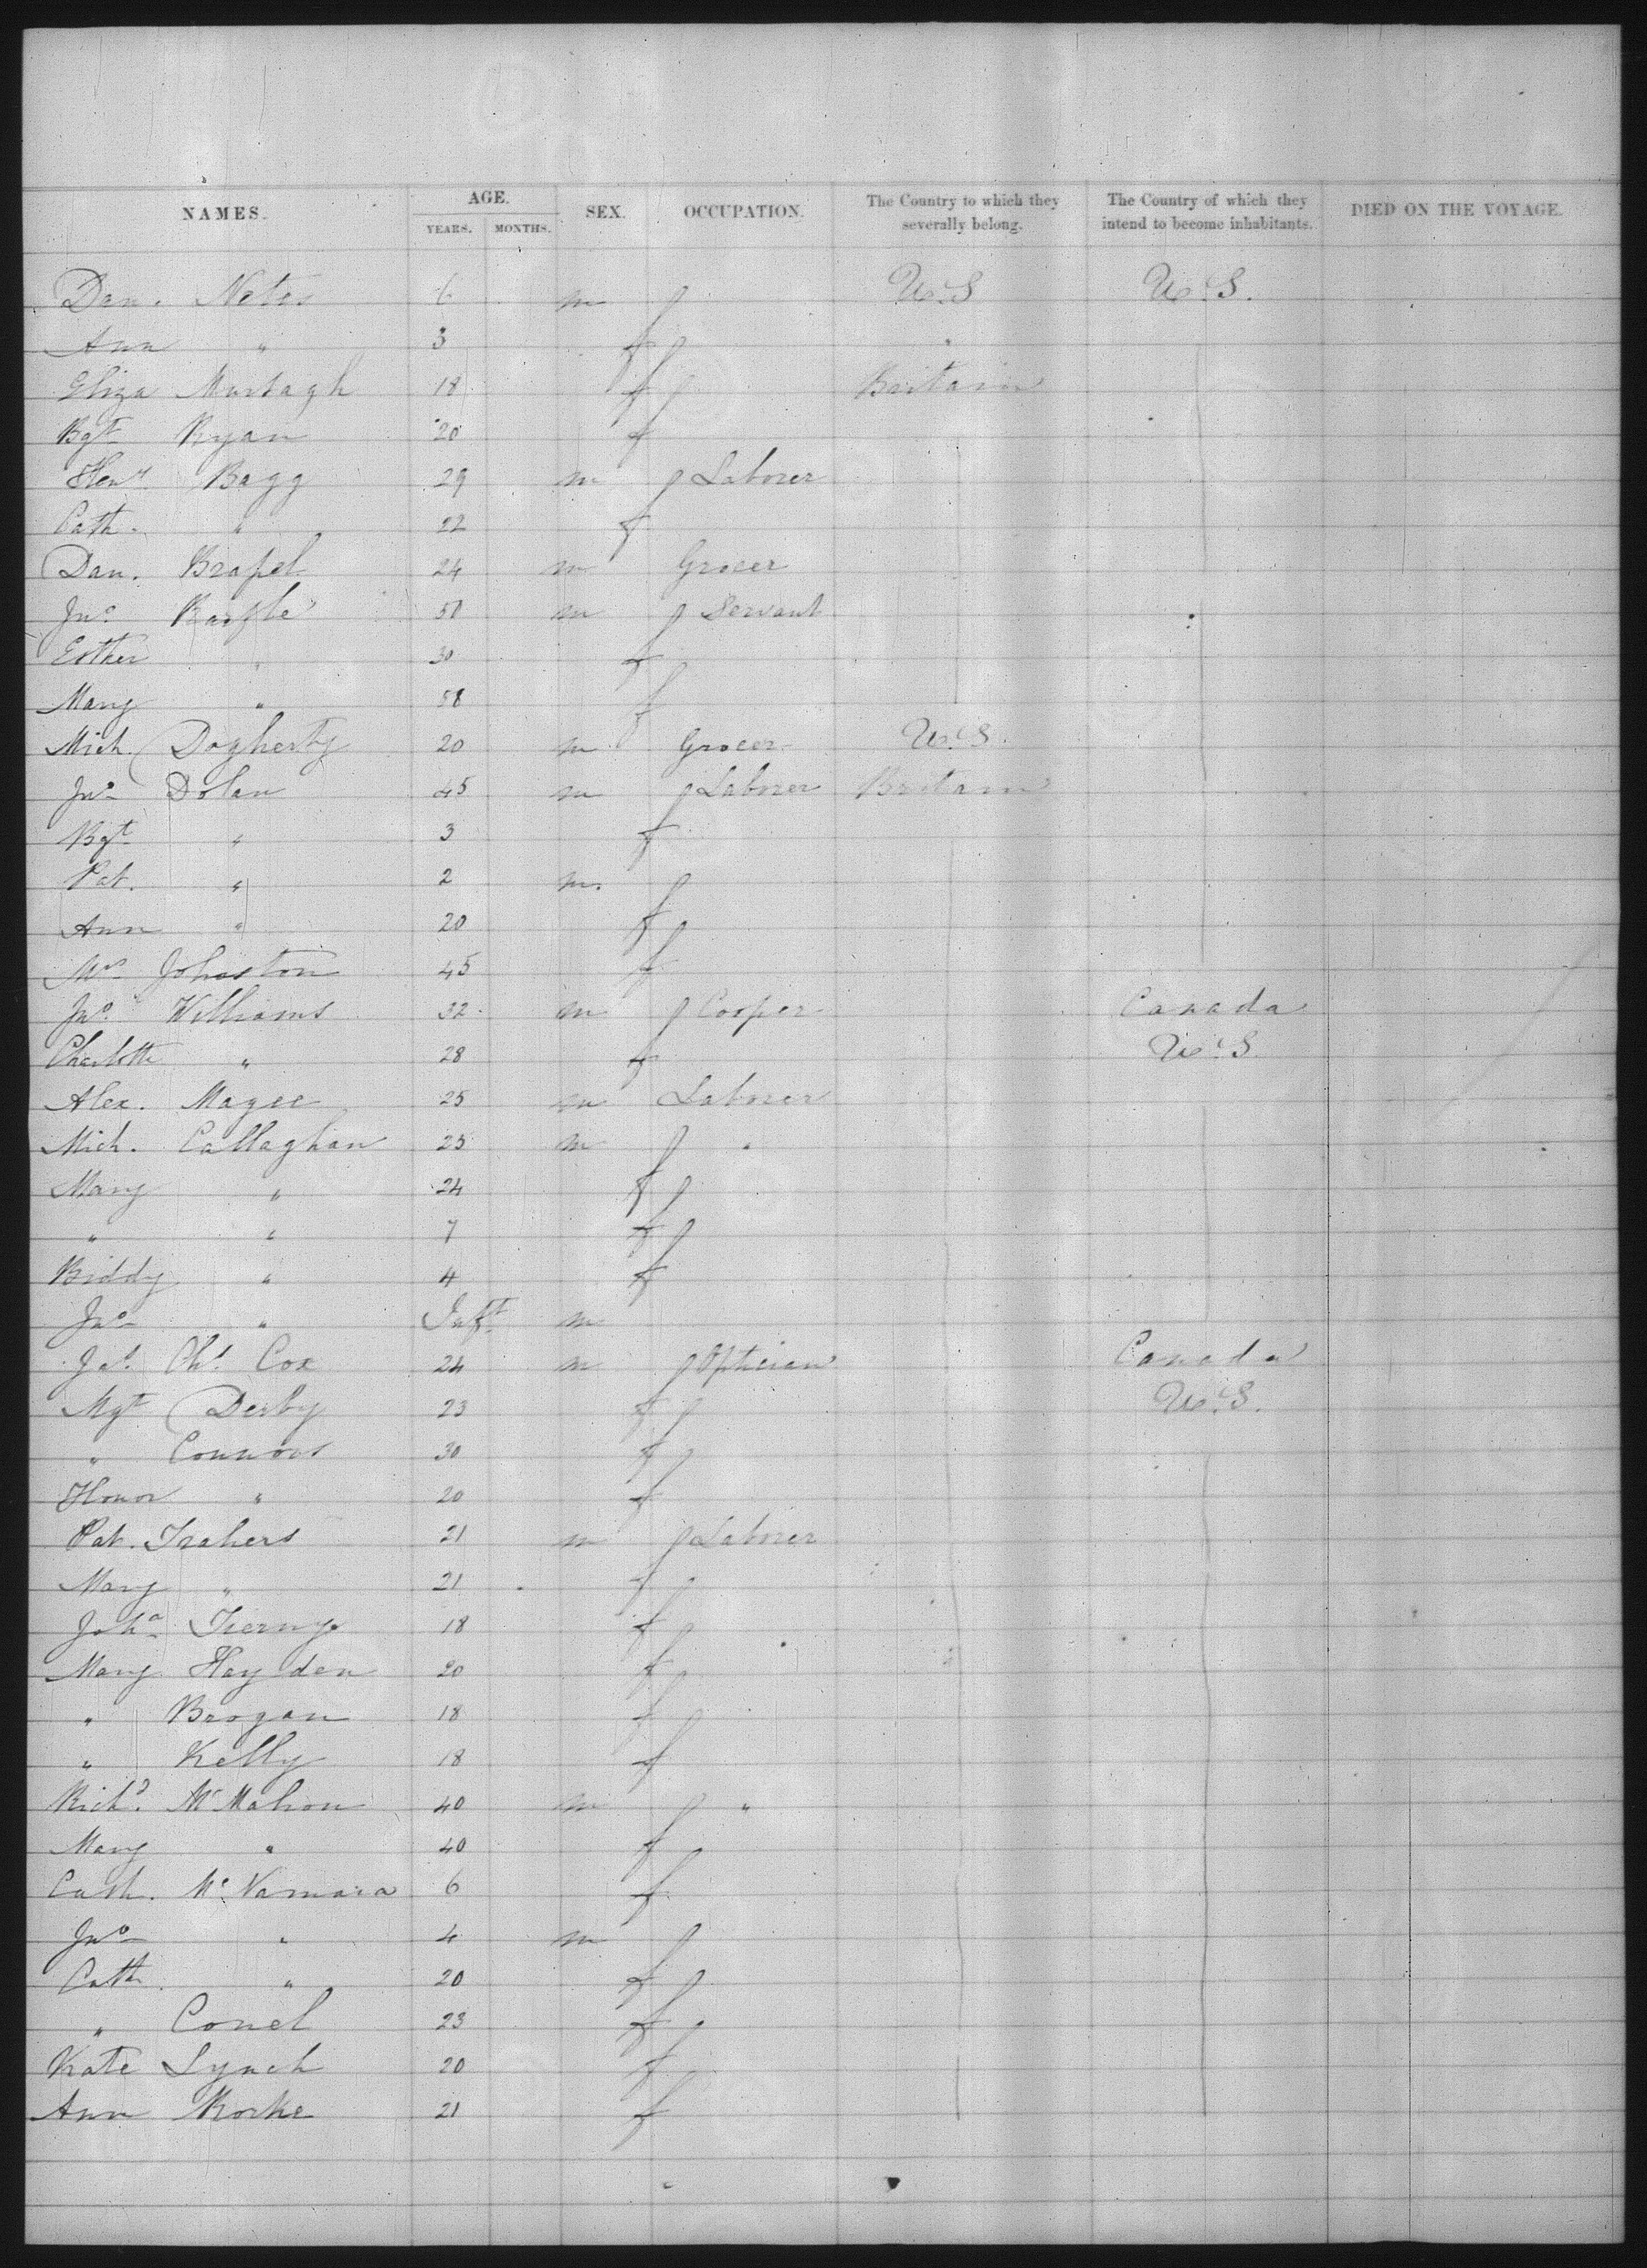 NAMES. AGE. SEX. OCCUPATION. The Country to which they severally belong. The Country of which they intend to become inhabitants. DIED ON THE VOYAGE.
YEARS. MONTHS.
Dan. 6 m U.S U.S.
Ann " 3 f "
Eliza Murtagh 18 f Britain
Bgt Ryan 20 f
Heny Bagg 29 m Laborer
Cath. " 22 f
Dan. 24 m Grocer
Jno 50 m Servant
Esther " 30 f
Mary " 58 f
Mich. Dogherty 20 m Grocer U.S.
Jno Dolan 45 m Laborer Britain
Bgt " 3 f
Pat. " 2 m.
Ann " 20 f
Mrs Johnston 45 f
Jno. Williams 32 m Cooper Canada
Charlotte " 28 f U.S
Alex. Magee 25 m Laborer
Mich. Callaghan 25 m "
Mary " 24 f
" " 7 f
Biddy " 4 f
Jno " Inft m
Jas. Chs. Cox 24 m Optician Canada
Mgt Derby 23 f U.S.
" Connors 30 f
Honor " 20 f
Pat. Trahers 21 m Laborer
Mary " 21 f
Joha Tierny 18 f
Mary Hayden 20 f
" Brogan 18 f
" Kelly 18 f
Richd. McMahon 40 m "
Mary " 40 f
Cath. McNamara 6 f
Jno " 4 m
Cath. " 20 f
" Conel 23 f
Kate Lynch 20 f
Ann Rorke 21 f